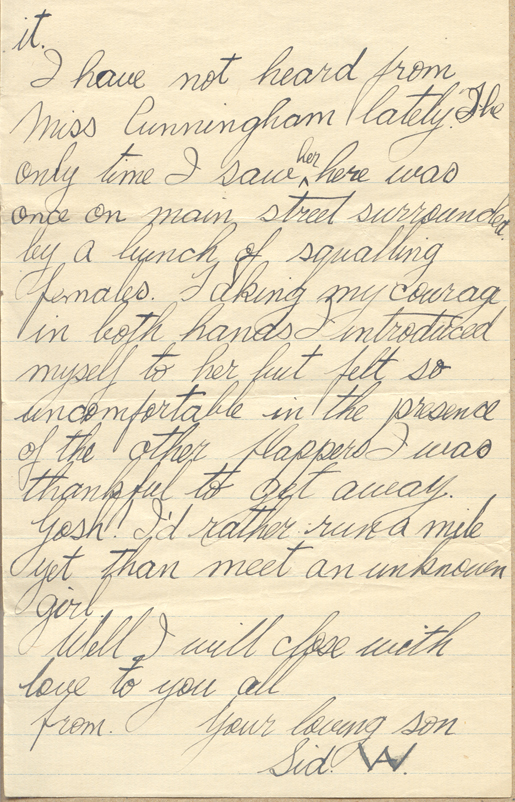 it.
I have not heard from
Miss Cunningham lately. The
only time I saw her here was
once on main street surrounded
by a bunch of squalling
females. Taking my courag
in both hands I introduced
myself to her but felt so
uncomfortable in the presence
of the other flappers I was
thankful to get away.
Gosh! I'd rather run a mile
yet than meet an unknown
girl
Well I will close with
love to you all
from. Your loving son
Sid. W.